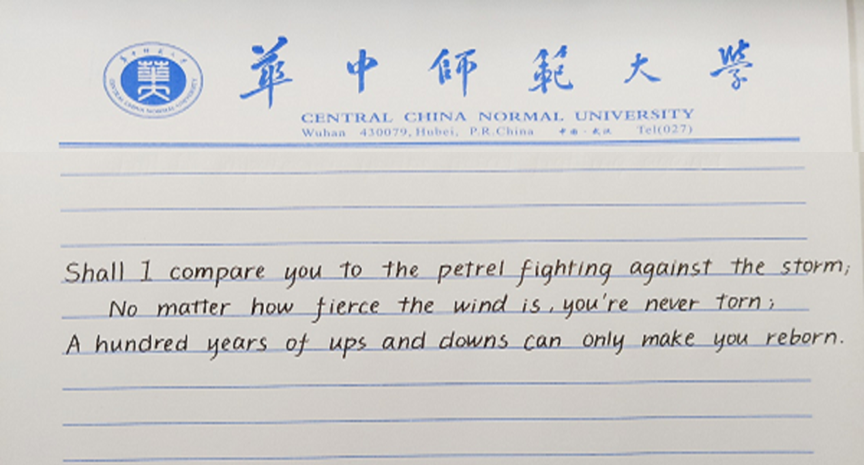 華中師範大學
CENTRAL CHINA NORMAL UNIVERSITY
CENTRAL CHINA NORMAL UNIVERSITY
Wuhan 430079, Hubei, P.R.China 中国·武汉 Tel(027)
Shall I compare you to the petrel fighting against the storm;
No matter how fierce the wind is, you're never torn;
A hundred years of ups and downs can only make you reborn.